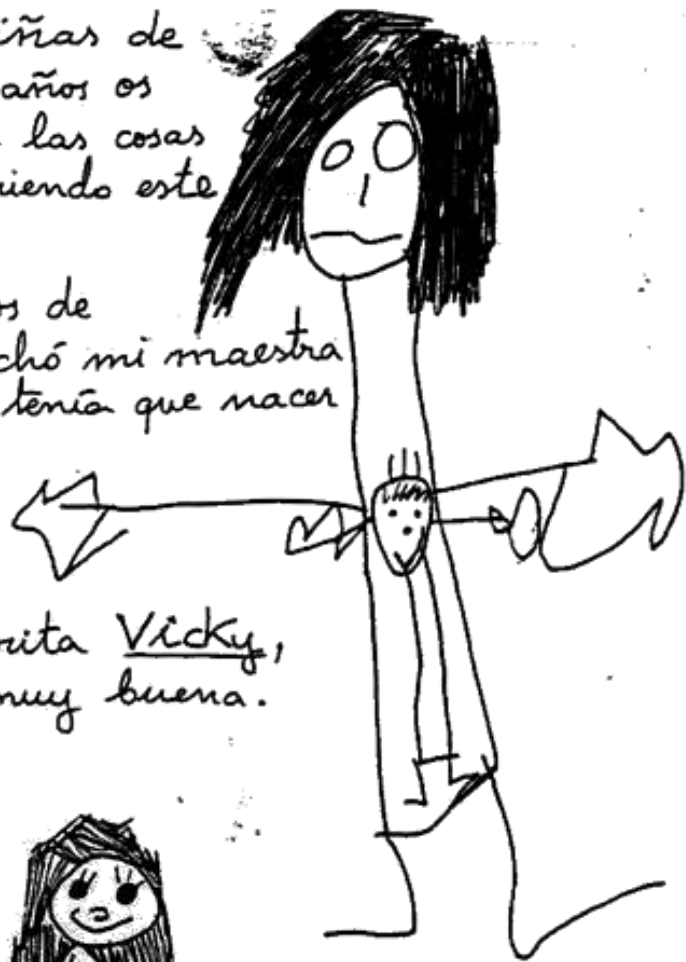 iñas de
años os
las cosas
riendo este
os de
chó mi maestra
tenía que nacer
rita Vicky,
muy buena.